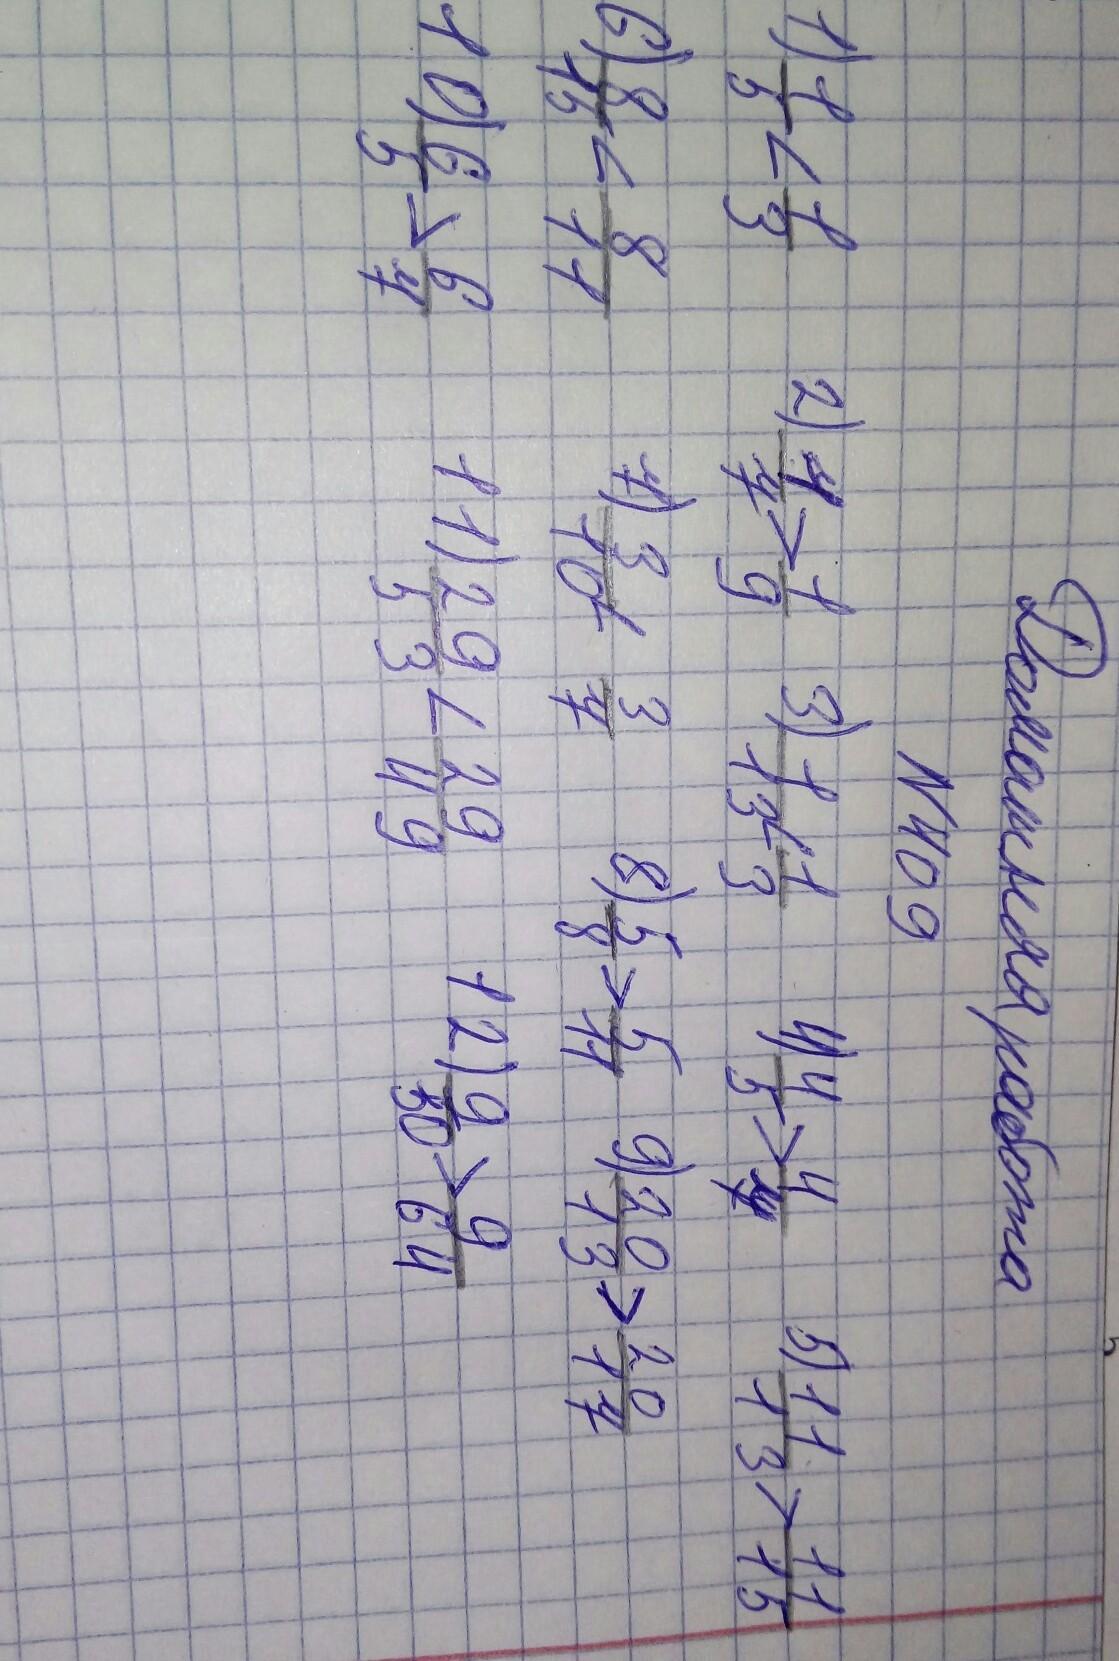 Домашняя работа
N409
1) 1/5 < 1/3 2) 1/7 > 1/9 3) 1/13 < 1/3 4) 4/5 > 4/7 5) 11/13 > 11/15
6) 8/15 < 8/11 7) 3/10 < 3/7 8) 5/8 > 5/11 9) 20/13 > 20/17
10) 6/5 > 6/7 11) 29/53 < 29/49 12) 9/50 > 9/64